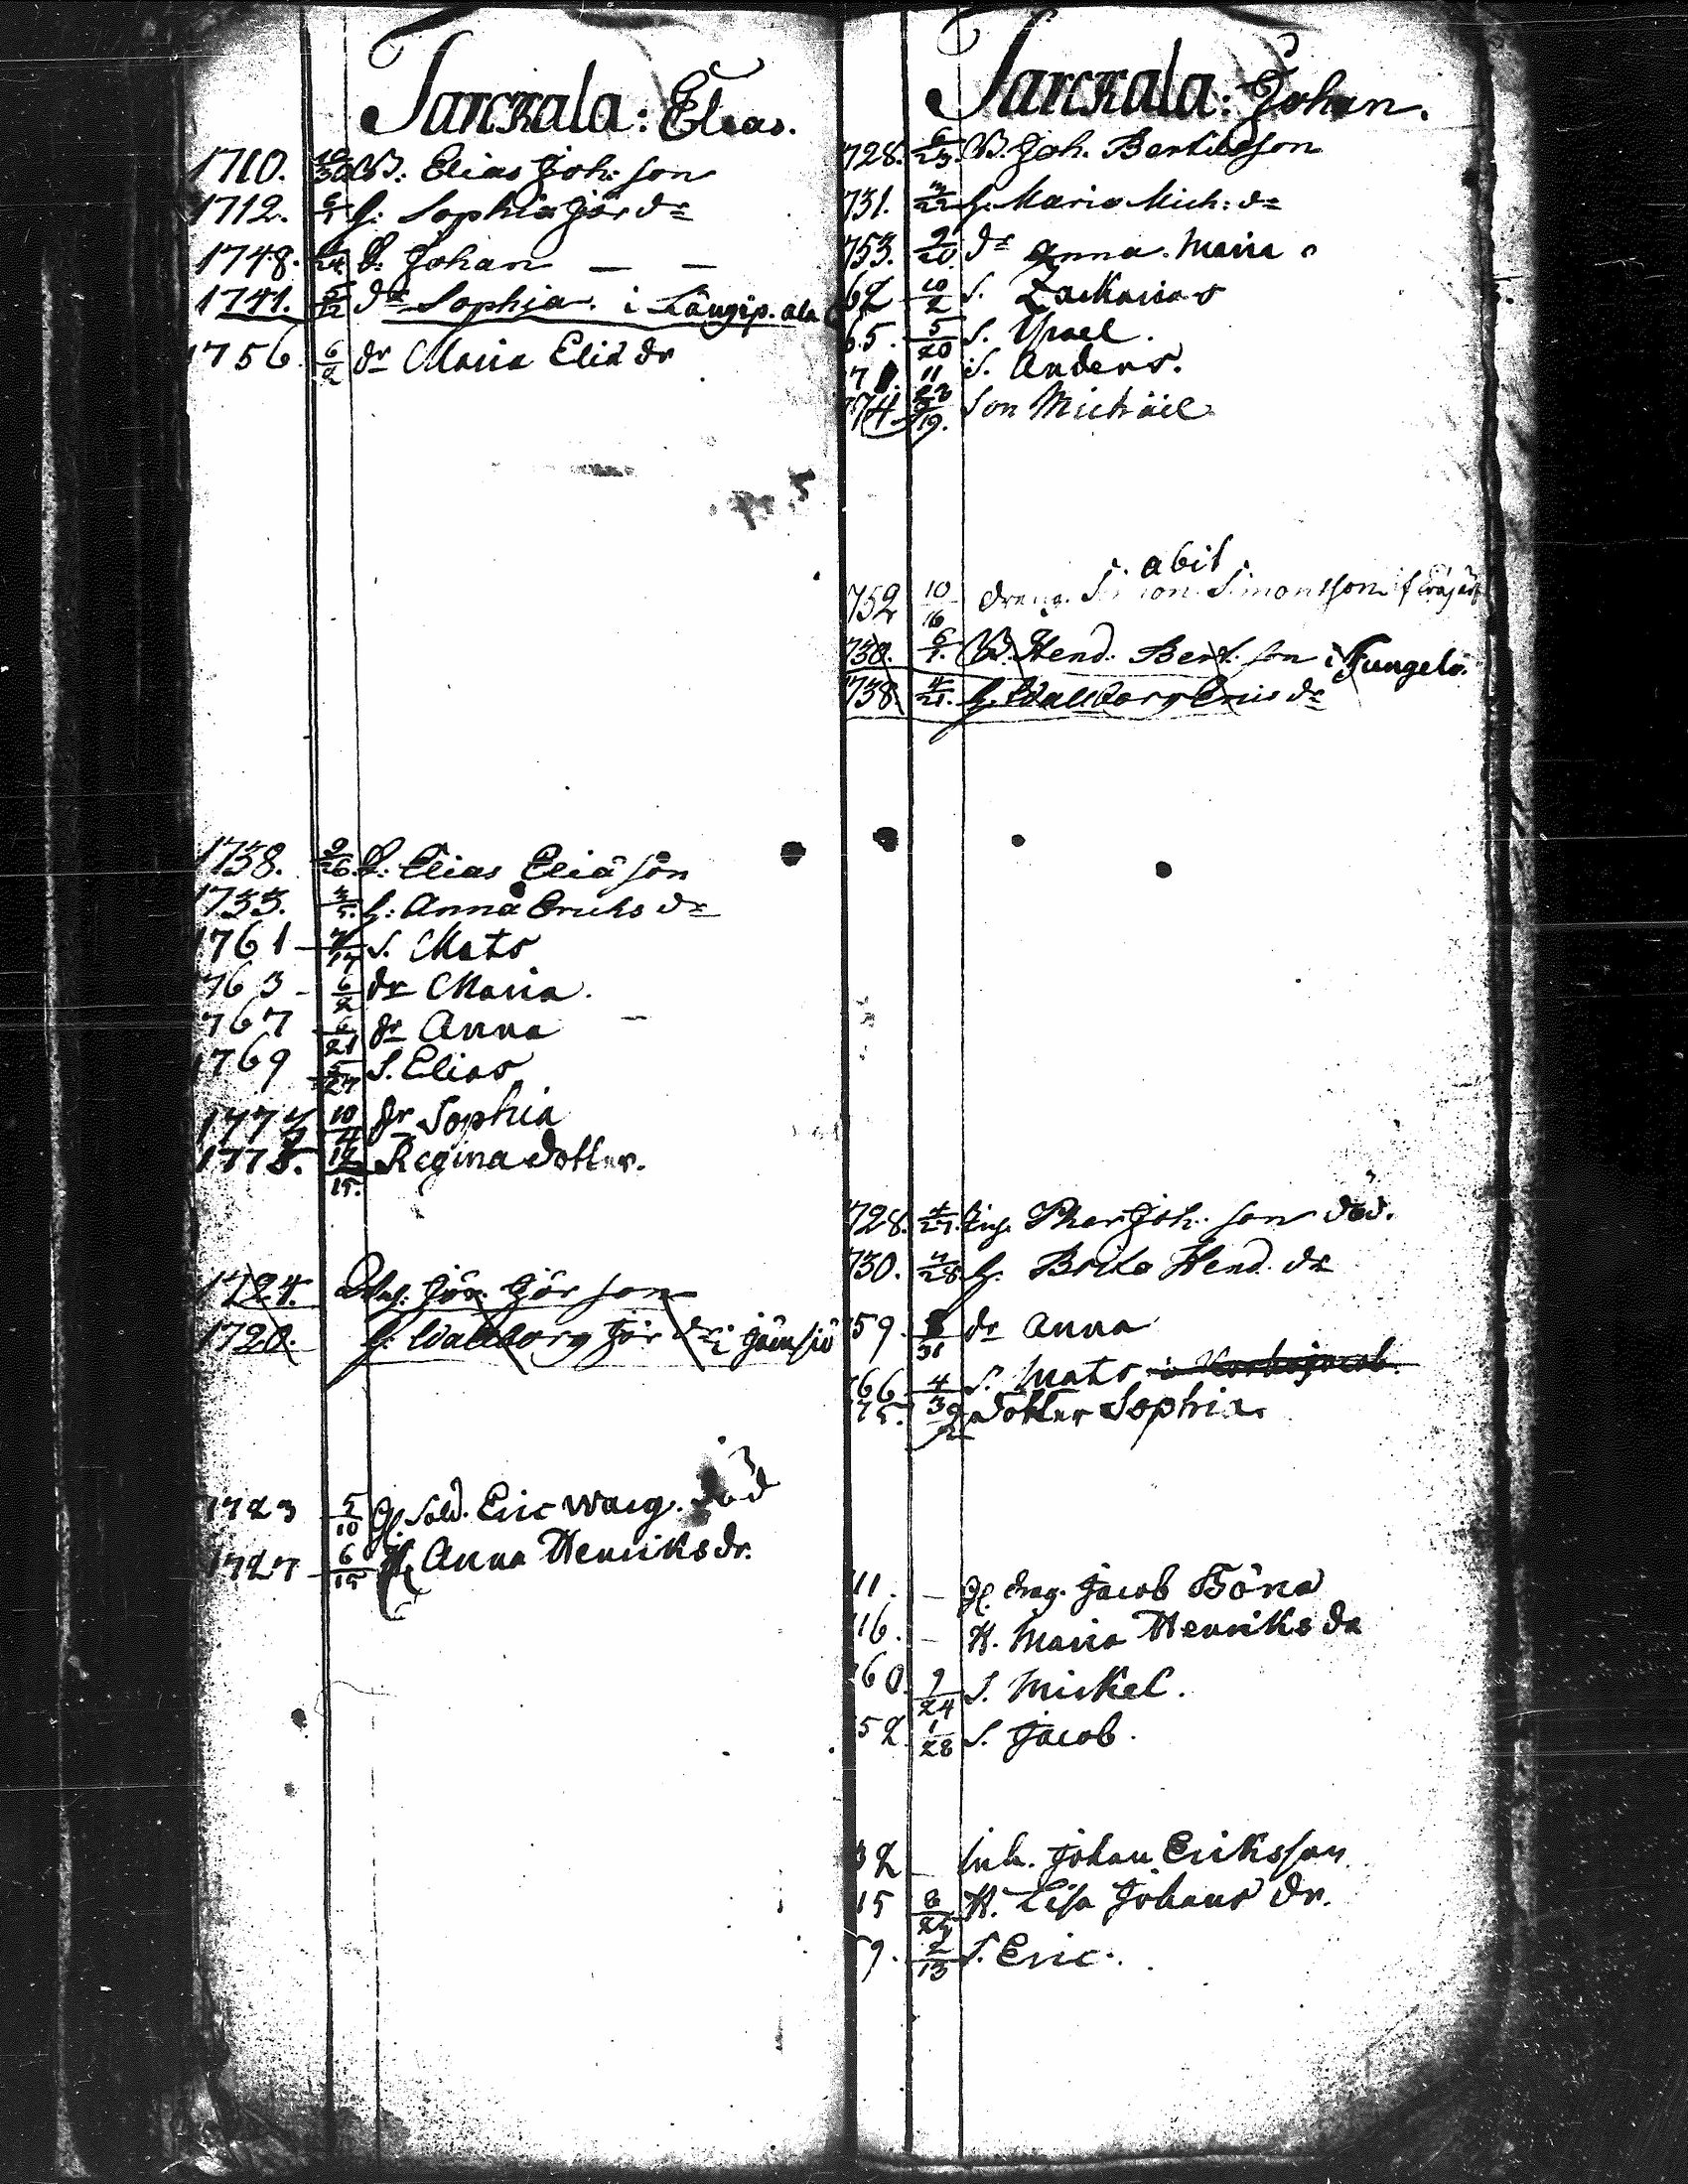 Tarckala: Elias.
1710. 10/30 B: Elias Joh: son
1712. 6/1 h: Sophia Jör dr
1748. 6/24 S: Johan — —
1741. 5/12 dr Sophia. i Långip. ala
1756. 6/2 dr Maria Eliæ dr
1738. 9/26. S: Elias Eliæ son
1733. 3/5. h: Anna Erichs dr
1761 - 7/17 S. Mats
1763 - 6/2 dr Maria.
1767 6/21 dr Anna
1769 5/27 S. Elias
177 10/4 dr Sophia
1775. 12/15. Regina dotter.
1724. Jör. Jör son
1720. h: Wallborg Jör dr i Jämsiö
1723 5/10 Gl. Sold. Eric Warg. död
1727 6/15 H. Anna Henriks dr.
Tarckala: Johan.
728. 6/23. B. Joh. Bertilsson
731. 3/22 h. Maria Mich: dr
753. 9/20. dr Anna. Maria
62 10/2 S. Zackarias
65. 5/20 S. Israel.
7 . 11/23 S. Anders.
774. 3/19. Son Michäel
abit
752 10/16 dreng. Simon Simonsson
730. 6/1. B. Hend. Bert. son i Jungelö.
738. 4/21. h. Wallborg Erics dr
728. 4/27. Inh. Pher Joh. son död.
730. 3/28 h. Brita Hend. dr
59. 8/31 dr Anna
66 4/3 S. Mats
75. 9/2 dotter Sophia.
11. — Gl. drag. Jacob Böna
16. — H. Maria Henriks dr
60. 9/24 S. Mickel.
52. 1/28 S. Jacob.
32 — Inh. Johan Eriksson
15 8/24 H. Lisa Johans dr.
9. 2/13 S. Eric.